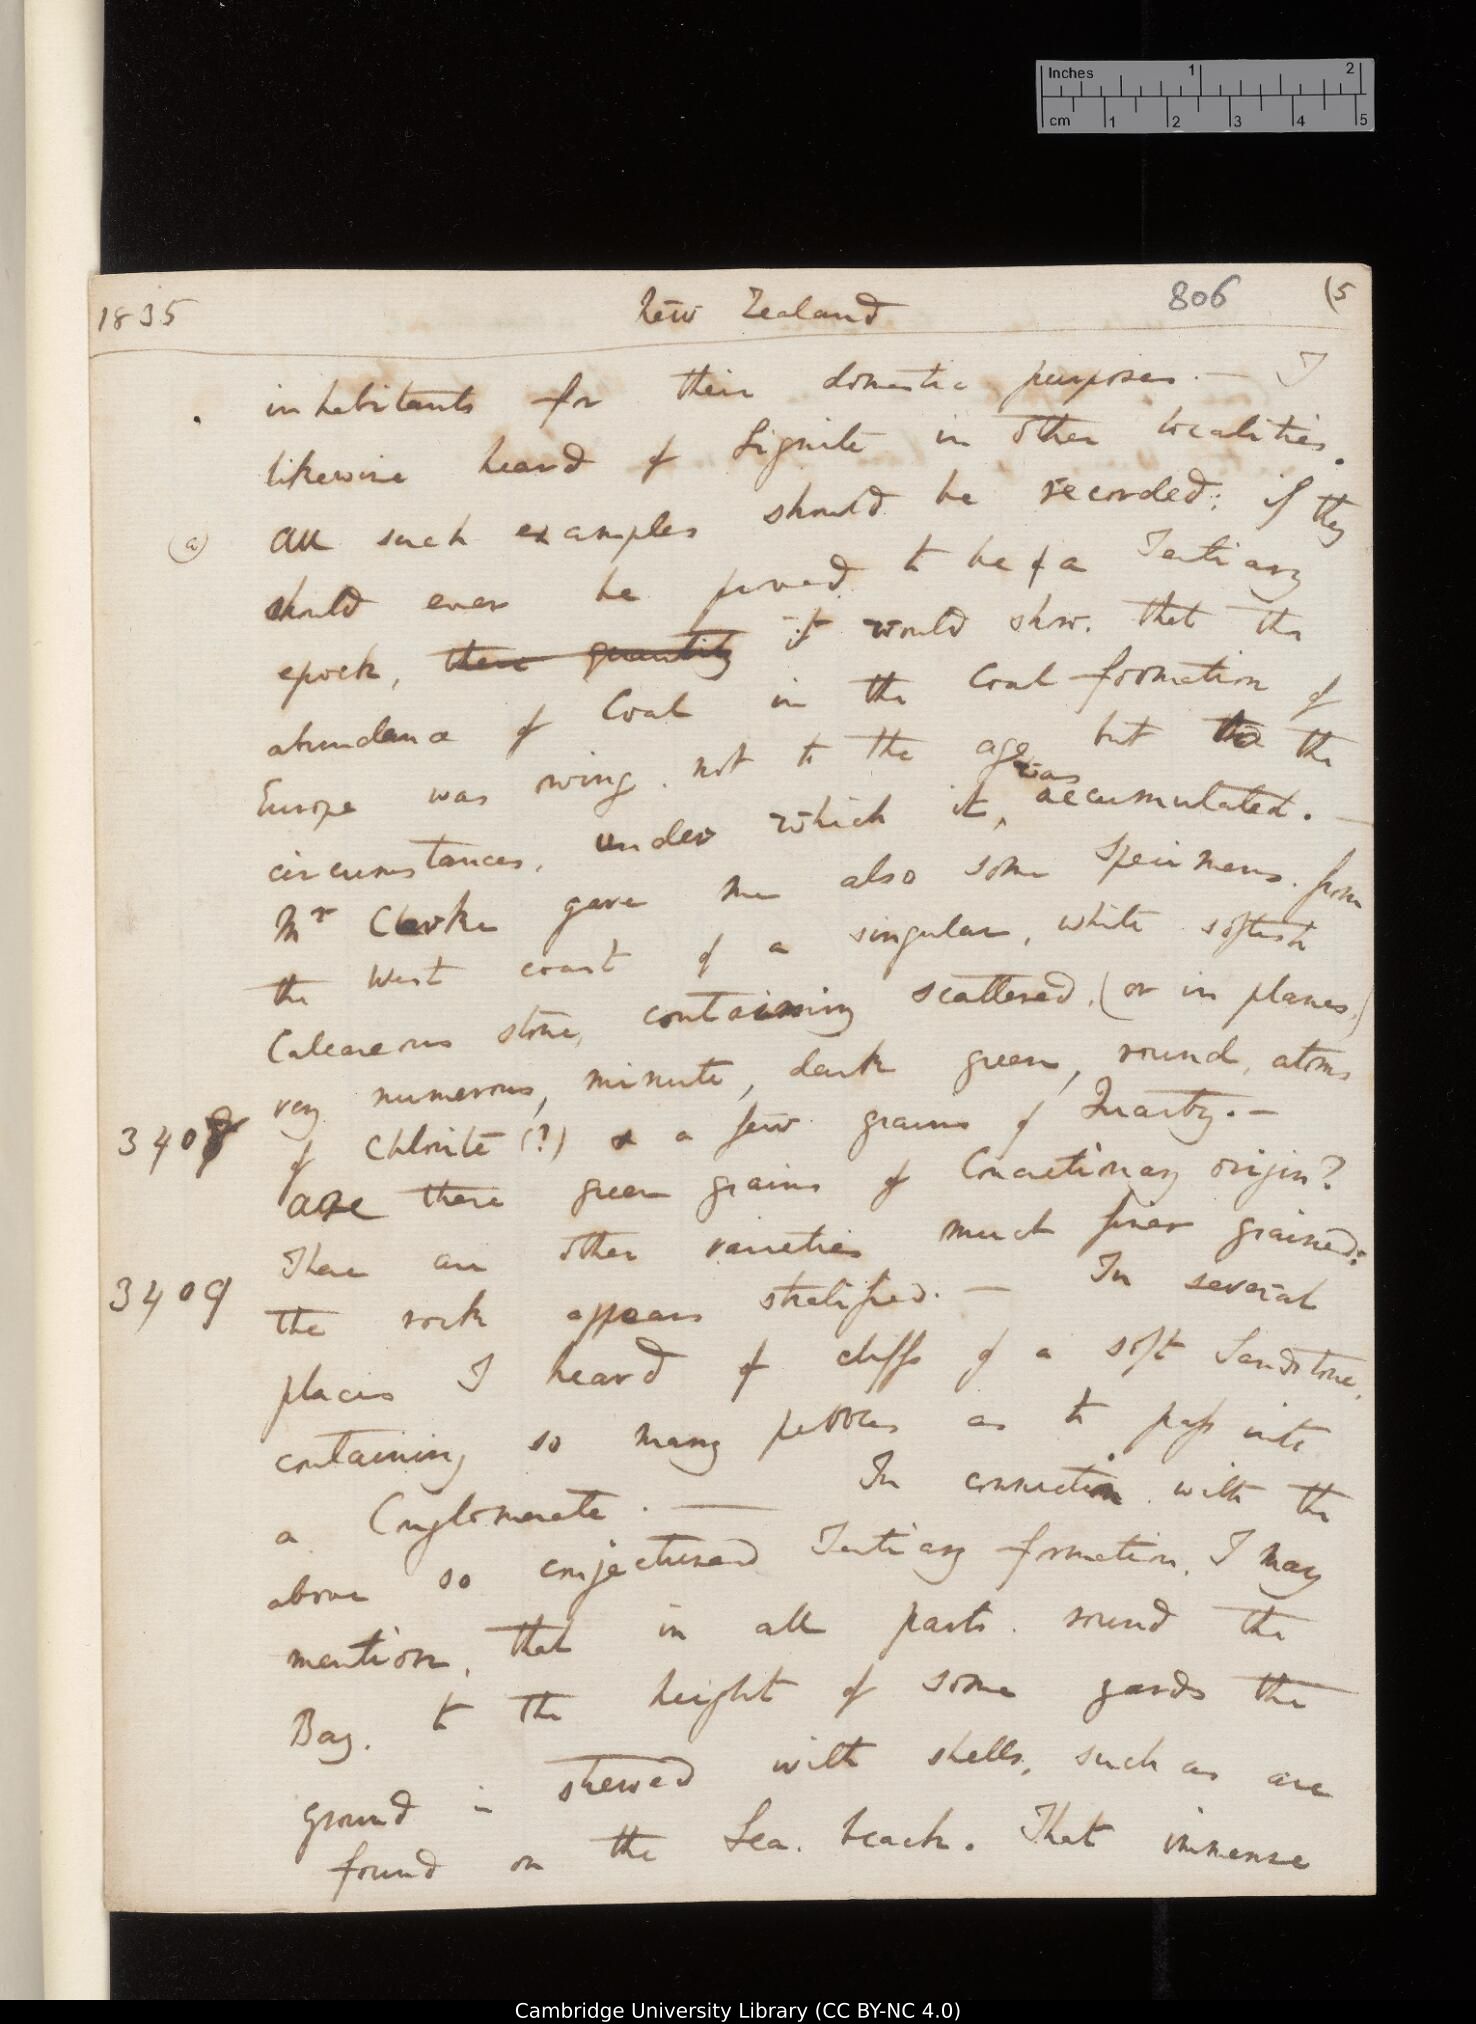 Inches 1 2
cm 1 2 3 4 5
1835 New Zealand 806 (5
inhabitants for their domestic purposes. — I
likewise heard of Lignite in other localities.
(a) All such examples should be recorded; if they
should ever be proved to be of a Tertiary
epoch, their quantity it would show. that the
abundance of Coal in the Coal formation of
Europe was owing. not to the age but to the
circumstances. under which it was accumulated. —
Mr Clarke gave me also some specimens. from
the West coast of a singular, white softish
Calcareous stone, containing scattered, (or in planes,)
very numerous, minute, dark green, round, atoms
3408 of Chlorite (?) & a few grains of Quartz. —
are these green grains of Concretionary origin?
There are other varieties much finer grained:
3409 the rock appears stratified. — In several
places I heard of cliffs of a soft Sandstone,
containing so many pebbles as to pass into
a Conglomerate. — In connection with the
above so conjectured Tertiary formation, I may
mention, that in all parts. round the
Bay. to the height of some yards the
ground is strewed with shells, such as are
found on the Sea. beach. That immense
Cambridge University Library (CC BY-NC 4.0)